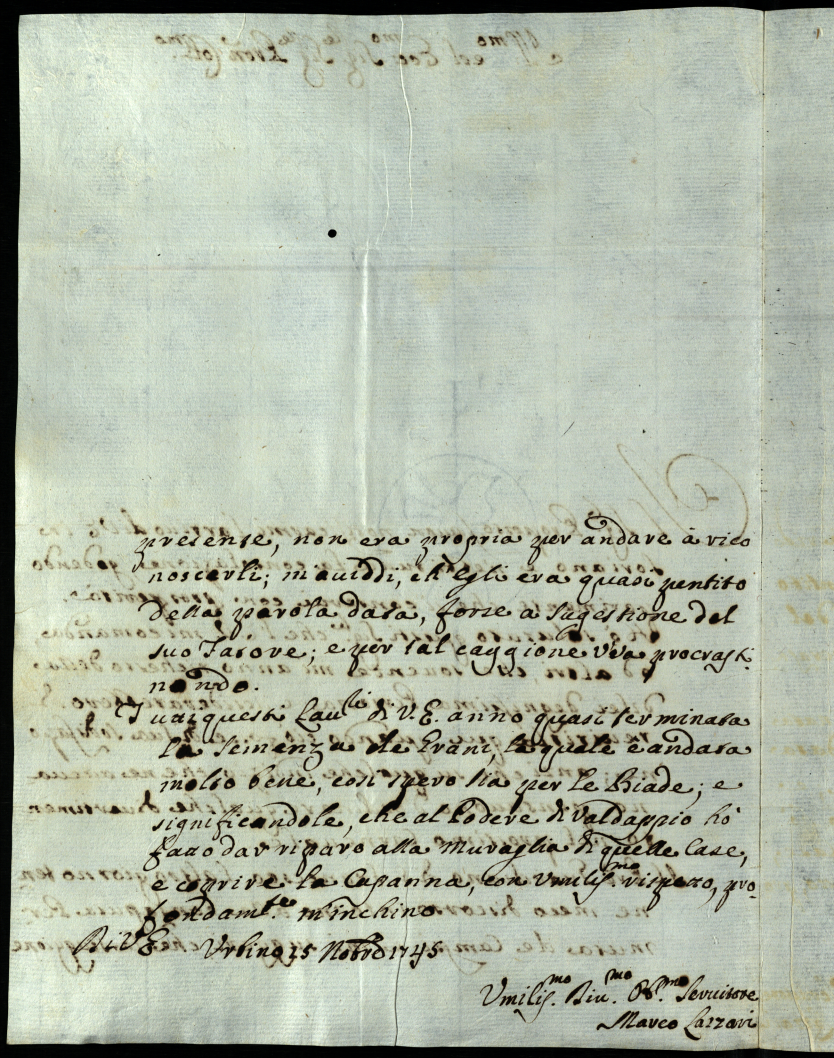 presente, non era propria per andare à rico
noscerli; m'aviddi, ch'Egli era quasi pentito
della parola data, forse a sugestione del
suo Fatore; e per tal caggione và procrasti
nando.
Tutti questi Lau.li di V.E. anno quasi terminata
la semenza de Grani, la quale è andata
molto bene, così spero sia per le Biade; e
significandole, che al Podere di Valdappio hò
fatto dar riparo alla Muraglia di quelle Case,
e coprire la Capanna, con Umiliss.mo rispetto, pro-
fondam.te m'inchino
Di V.E. Urbino 15 Nobre 1745
Umiliss.mo Div.mo Obl.mo Servitore
Marco Lazzari